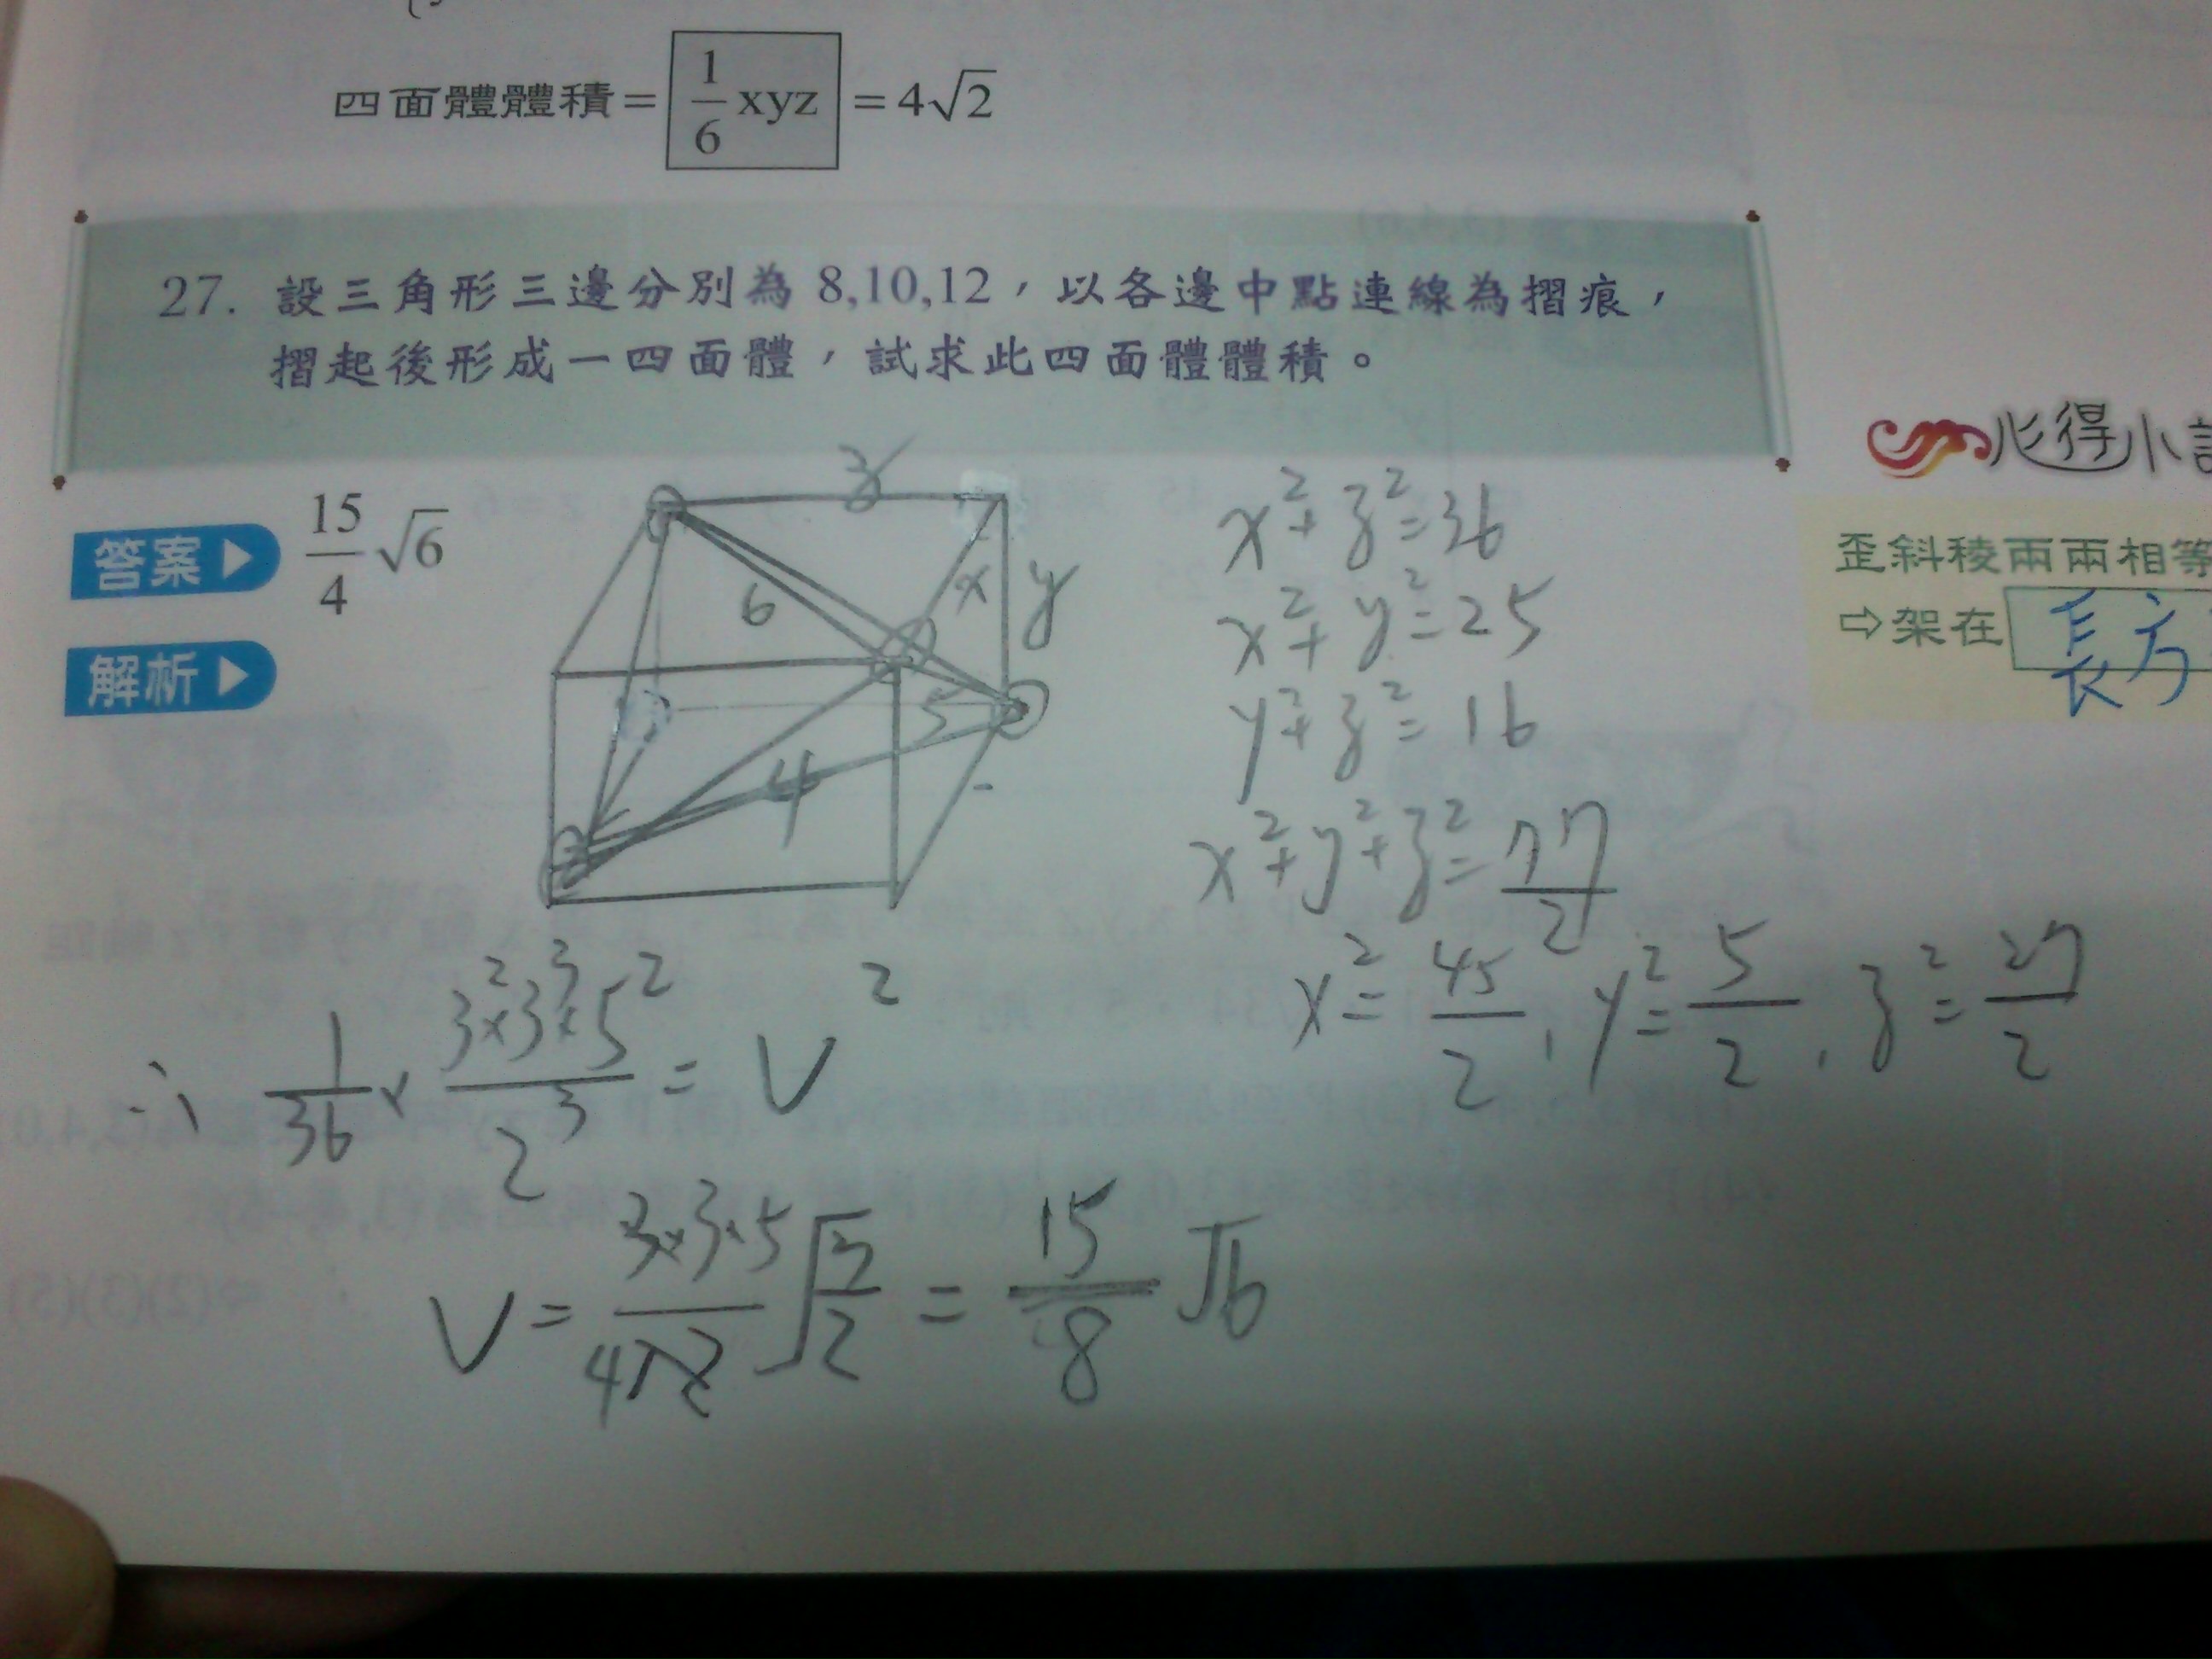 四面體體積 = 1/6 xyz = 4√2
27. 設三角形三邊分別為 8,10,12，以各邊中點連線為摺痕，
摺起後形成一四面體，試求此四面體體積。
心得小
答案▶ 15/4 √6
解析▶
歪斜稜兩兩相等
⇨架在 長方
z
x
y
6
5
4
x²+z²=36
x²+y²=25
y²+z²=16
x²+y²+z²=77/2
x²=45/2, y²=5/2, z²=27/2
∴ 1/36 × 3²×3³×5²/2³ = V²
V = 3×3×5/4√2 √3/2 = 15/8 √6